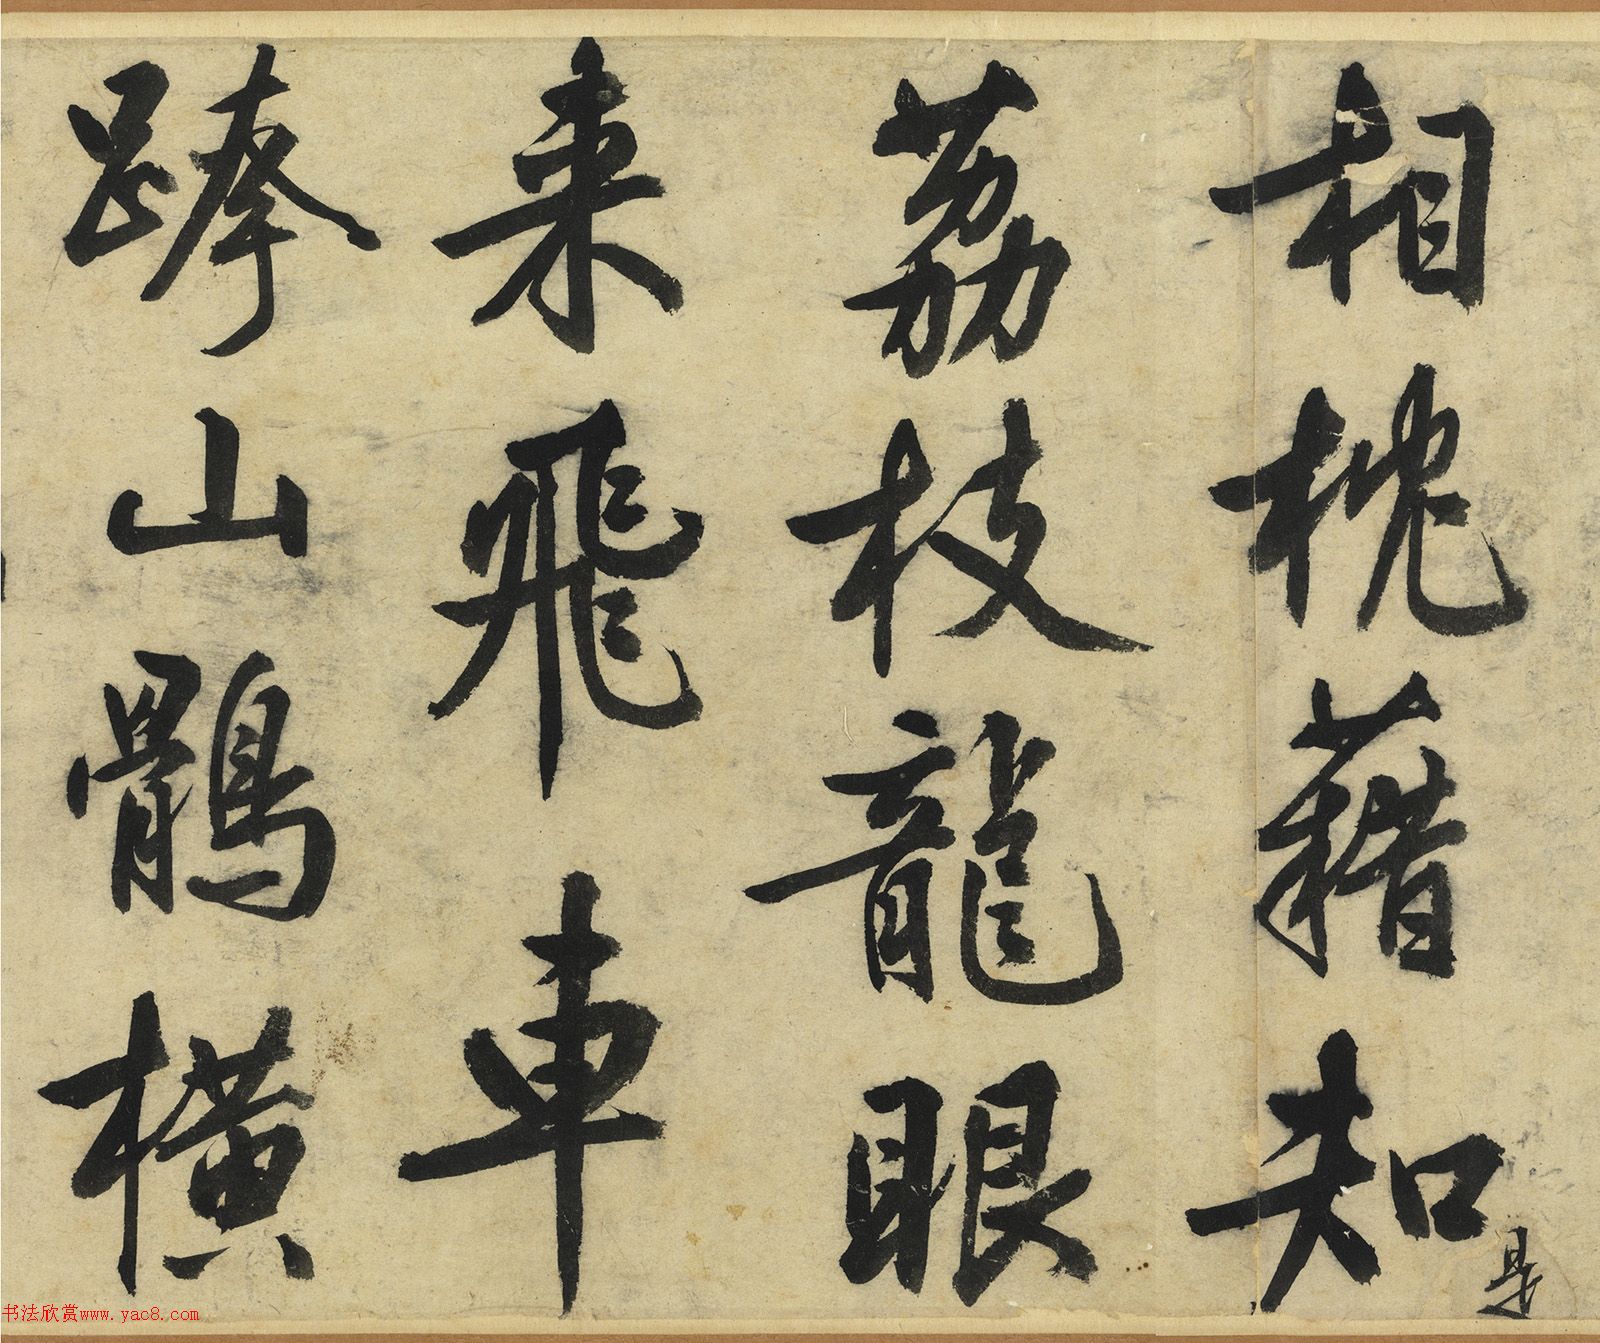 相枕藉知是
荔枝龍眼
来飛車
跨山鶻横
书法欣赏www.yac8.com